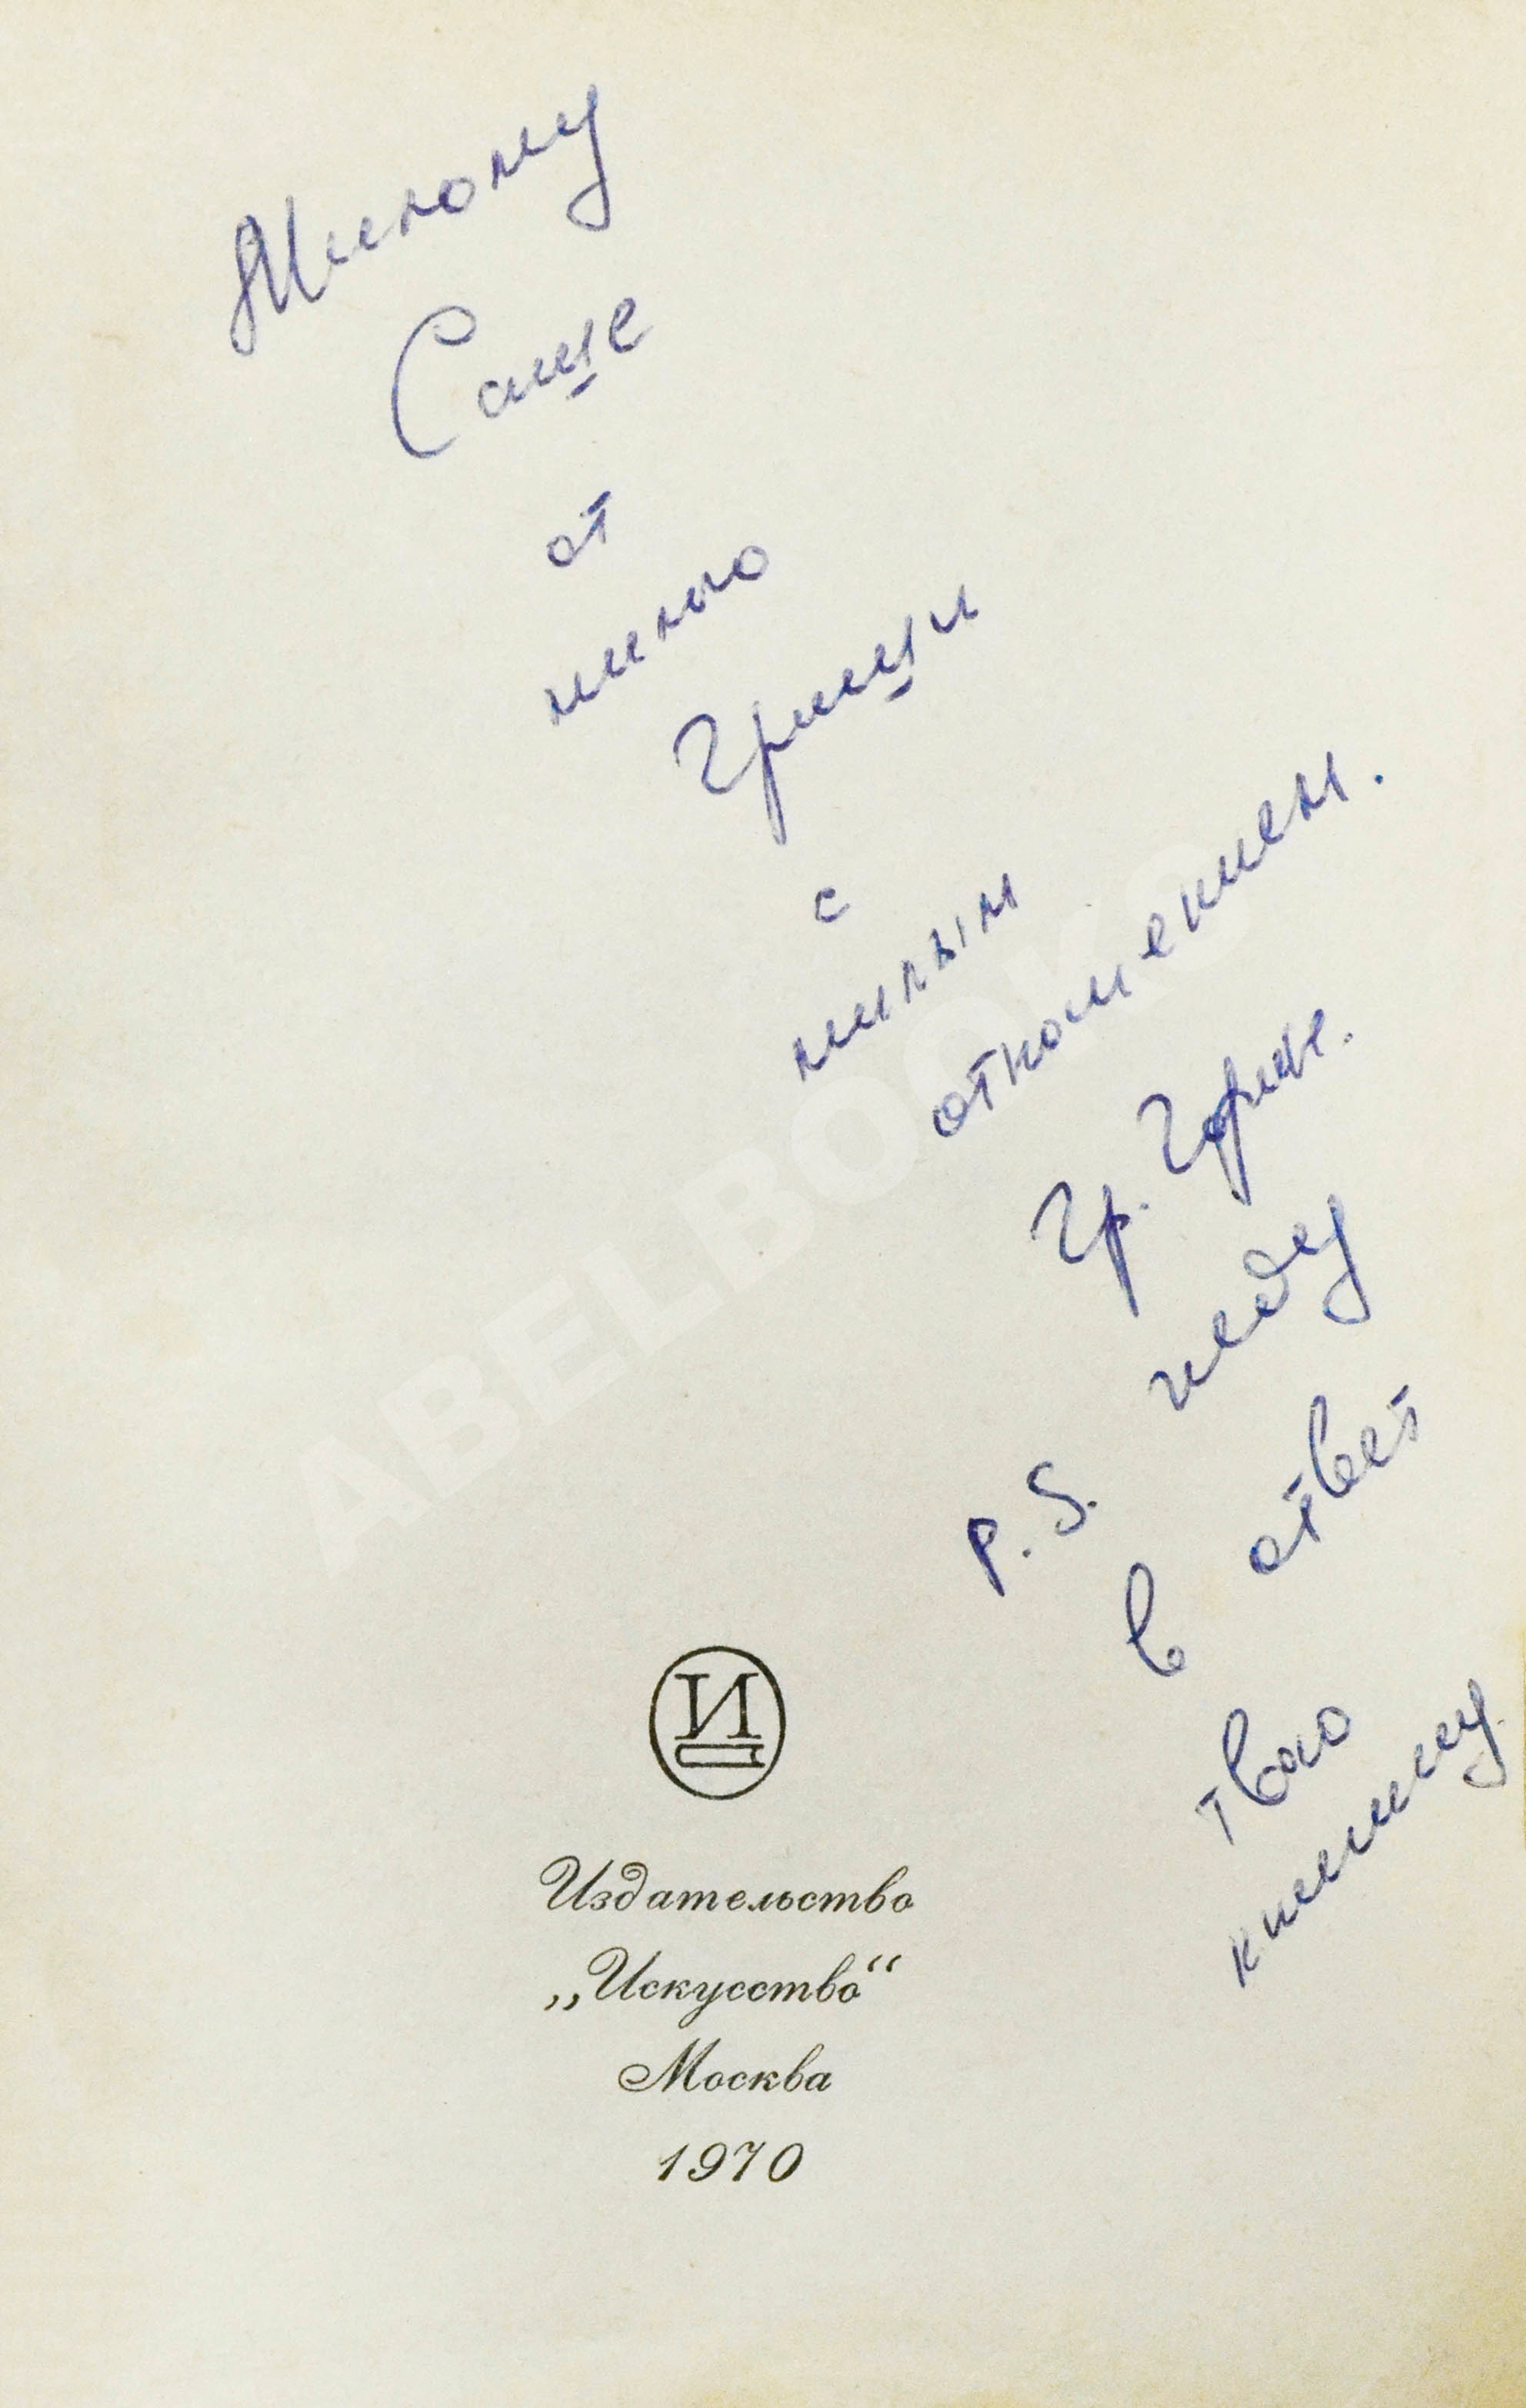 Милому
Саше
от
милого
Гриши
с
милым
отношением.
Гр. Горин.
P.S. жду
в ответ
твою
книжку.
ABELBOOKS
И
Издательство
„Искусство“
Москва
1970